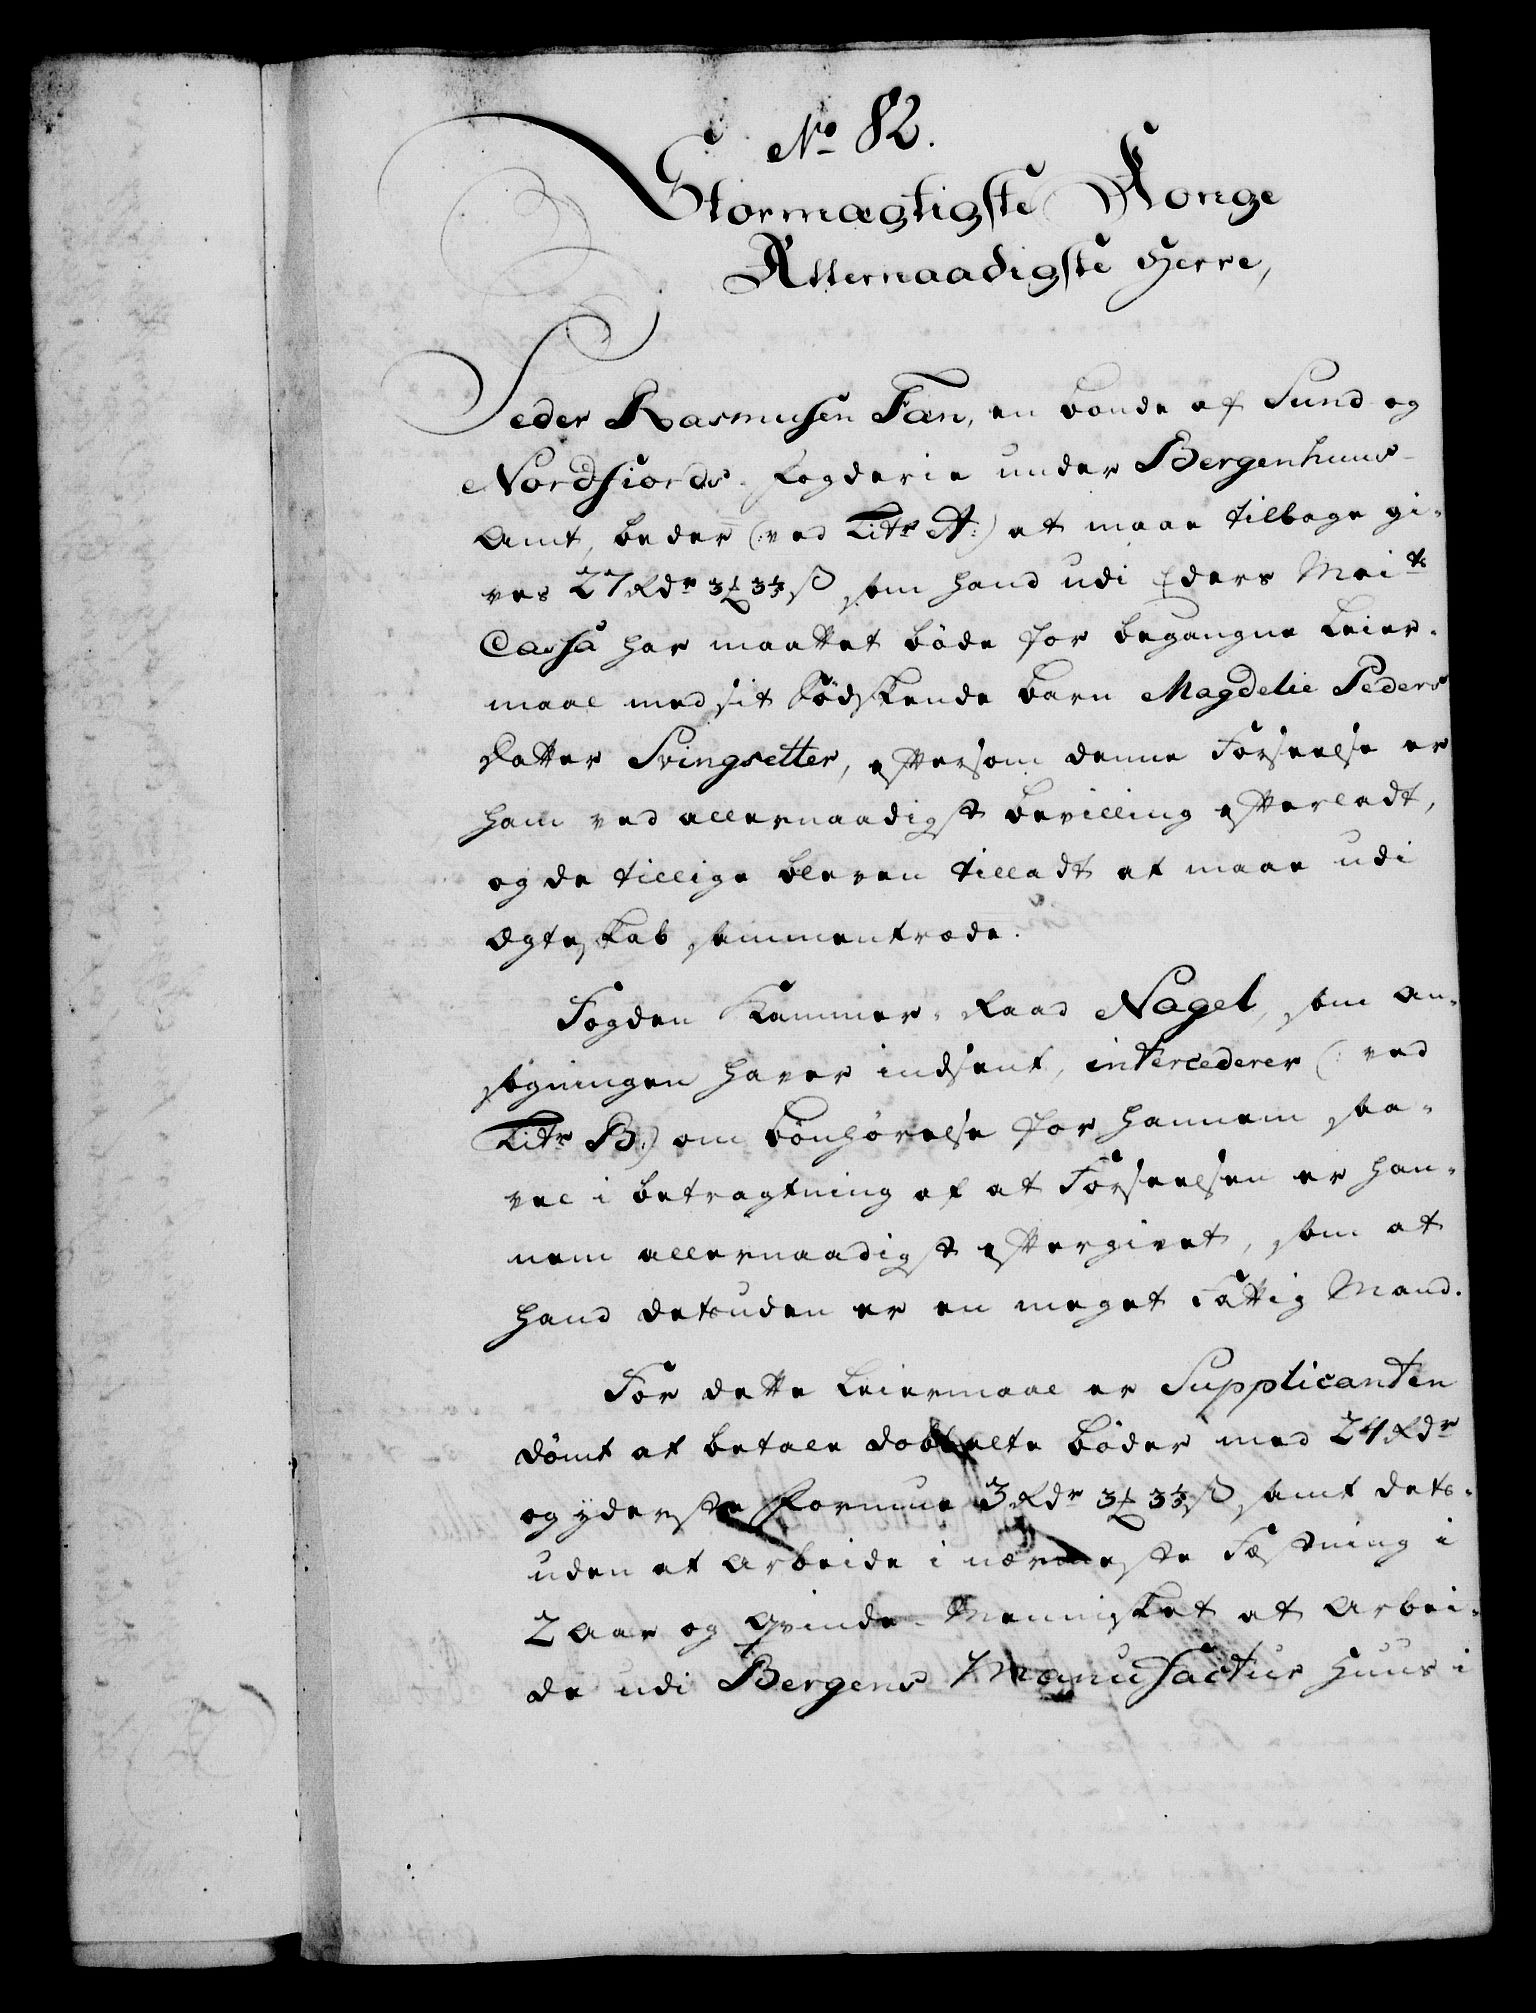 No 82.
Stormægtigste Konge
Allernaadigste Herre,
Peder Rasmusen Fan, en bonde af Sund og
Nordfiords-fogderie under Bergenhuus-
Amt, beder (:ved Litr A:) at maae tilbage gi-
ves 27 Rdr 3 ℔ 3⅓ ß som hand udi Eders Maits
Cassa har maattet bøde for begangne Leier-
maal med sit Sødskende barn Magdelie Peders
datter Svingsetter, eftersom denne Forseelse er
ham ved allernaadigst bevilling efterladt,
og de tillige bleven tilladt at maae udi
Ægteskab sammentræde.
Fogden Kammer-Raad Nagel, som an-
søgningen haver indsent, intercederer (: ved
Litr B:) om bønhørelse for hannem saa-
vel i betragtning af at Forseelsen er han-
nem allernaadigst eftergivet, som at
hand desuden er en meget Fattig Mand.
For dette Leiermaal er Supplicanten
dømt at betale dobbelte bøder med 24 Rdr
og yderste formue 3 Rdr 3 ℔ 3⅓ ß samt des-
uden at arbeide i nærmeste Fæstning i
2 aar og qvinde-Mennisket at arbei-
de udi Bergens Manufactur huus i